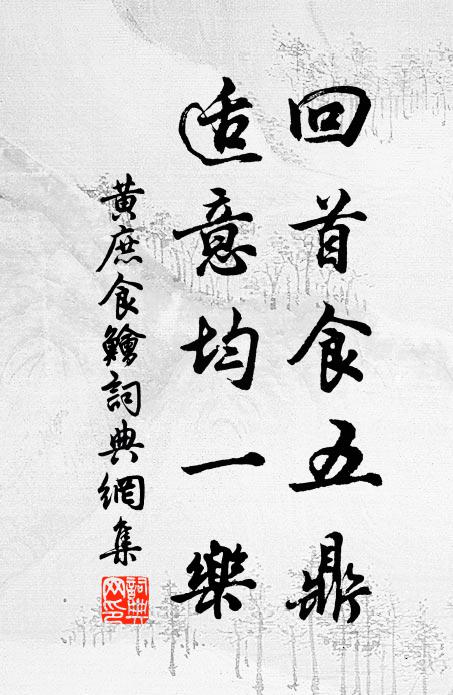 回首食五鼎
适意均一樂
黃庶食鱠詞典網集
詞典網印